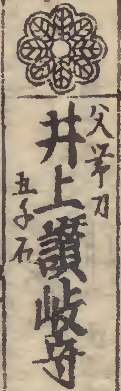 父帯刀
井上讃岐守
五千石